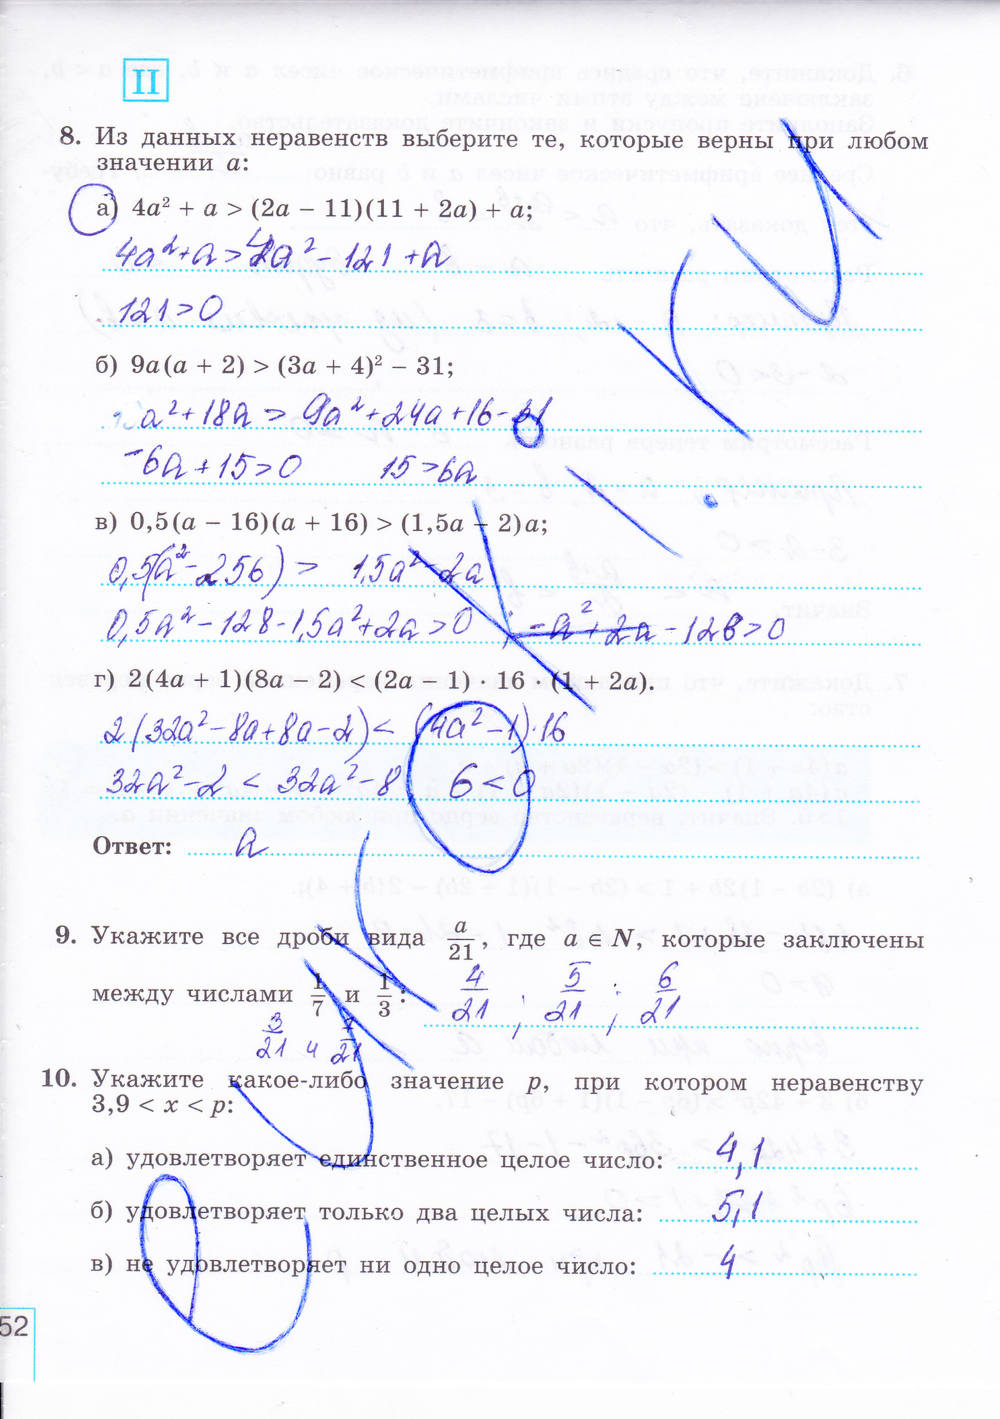 II
8. Из данных неравенств выберите те, которые верны при любом
значении a:
а) 4a² + a > (2a − 11)(11 + 2a) + a;
4a²+a>4a²−121+a
121>0
б) 9a(a + 2) > (3a + 4)² − 31;
a²+18a > 9a²+24a+16−31
−6a+15>0 15>6a
в) 0,5(a − 16)(a + 16) > (1,5a − 2)a;
0,5(a²−256) > 1,5a²−2a
0,5a²−128−1,5a²+2a>0; −a²+2a−128>0
г) 2(4a + 1)(8a − 2) < (2a − 1) · 16 · (1 + 2a).
2(32a²−8a+8a−2)< (4a²−1)·16
32a²−2 < 32a²−8 6<0
Ответ: а
9. Укажите все дроби вида a/21, где a ∈ N, которые заключены
между числами 1/7 и 1/3: 4/21, 5/21, 6/21
3/21 и 7/21
10. Укажите какое-либо значение p, при котором неравенству
3,9 < x < p:
а) удовлетворяет единственное целое число: 4,1
б) удовлетворяет только два целых числа: 5,1
в) не удовлетворяет ни одно целое число: 4
52